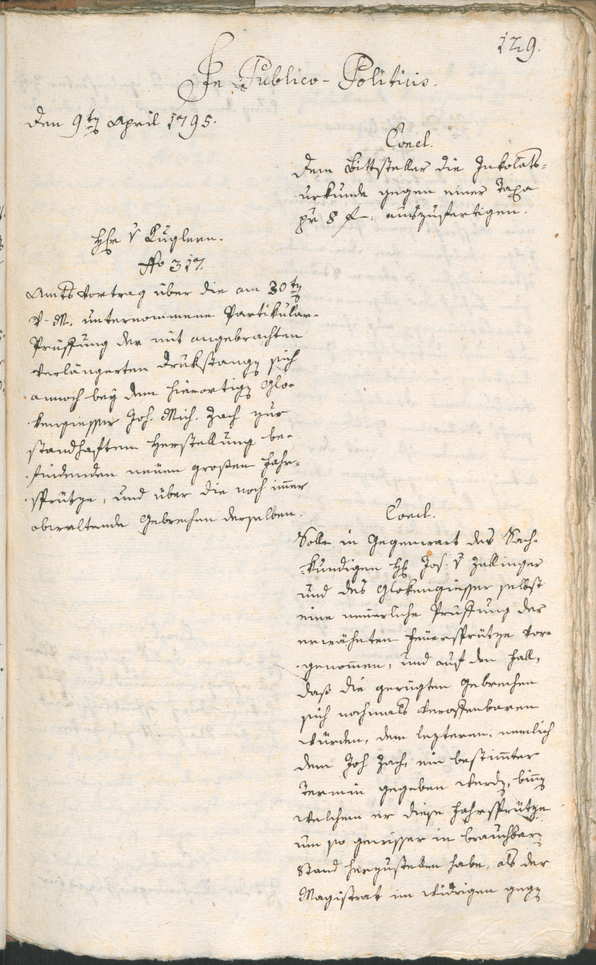 129.
In Publico-Politicis.
den 9ten April 1795.
Concl.
Dem Bittsteller die Inkolats-
urkunde gegen einer Taxa
pr 8 f. auszufertigen.
Hr. v Kuglern.
No 317.
Amtsvortrag über die am 30ten
v. M. unternommene Partikular-
Prüffung der mit angebrachten
verlängerten Drukstangen sich
annoch bey dem hierortigen Glo-
kengiesser Joh. Mich. Zach zur
standhaften Herstellung be-
findenden neuen grossen Fahr-
sprütze, und über die noch immer
obwaltende Gebrechen derselben.
Concl.
Solle in Gegenwart des Sach-
kundigen H. Jos. v Zallinger
und des Glokengiesser selbst
eine neuerliche Prüffung der
erwähnten Feuersprütze vor-
genommen, und auf den Fall,
daß die gerügten Gebrechen
sich nochmals veroffenbaren
würden, dem lezteren, nemlich
dem Joh Zach, ein bestimmter
Termin gegeben werden, binnen
welchem er diese Fahrsprütze
um so gewisser in brauchbaren
Stand herzustellen habe, als der
Magistrat im widrigen gegen